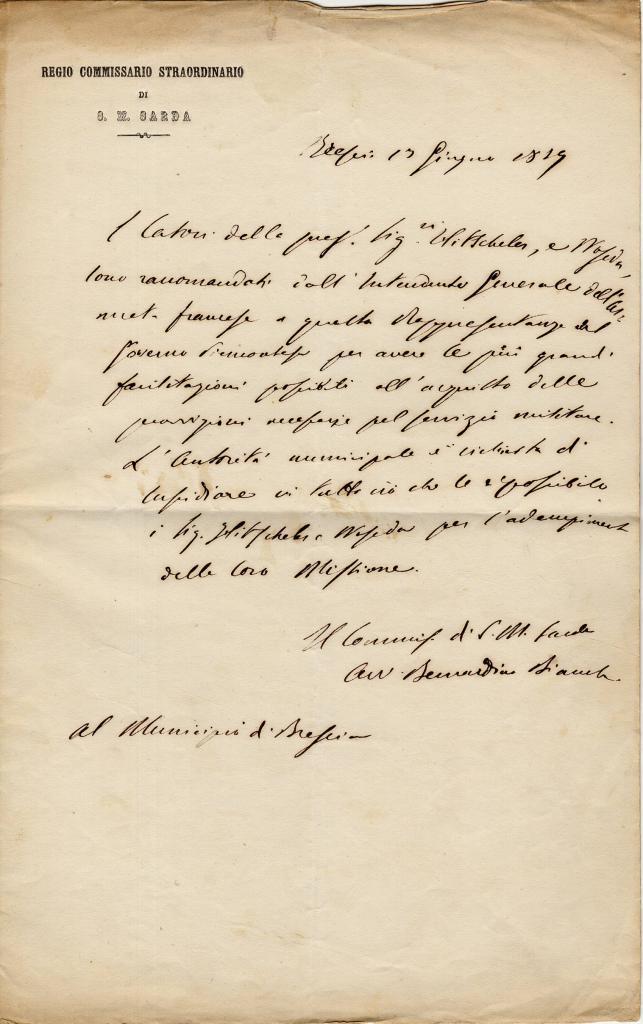 REGIO COMMISSARIO STRAORDINARIO
DI
S. M. SARDA
Brescia 17 Giugno 1859
I latori della pres.te Sig.ri Hitscheler, e
sono raccomandati dall'Intendente Generale dell'Ar-
mata francese a questa Rappresentanza del
Governo Piemontese per avere le più grandi
facilitazioni possibili all'acquisto delle
provvigioni necessarie pel servizio militare.
L'Autorità municipale è richiesta di
sussidiare in tutto ciò che le è possibile
i Sig. Hitscheler e per l'adempimento
della loro Missione.
Il Commiss. di S. M. Sarda
Avv. Bernardino Bianchi
Al Municipio di Brescia